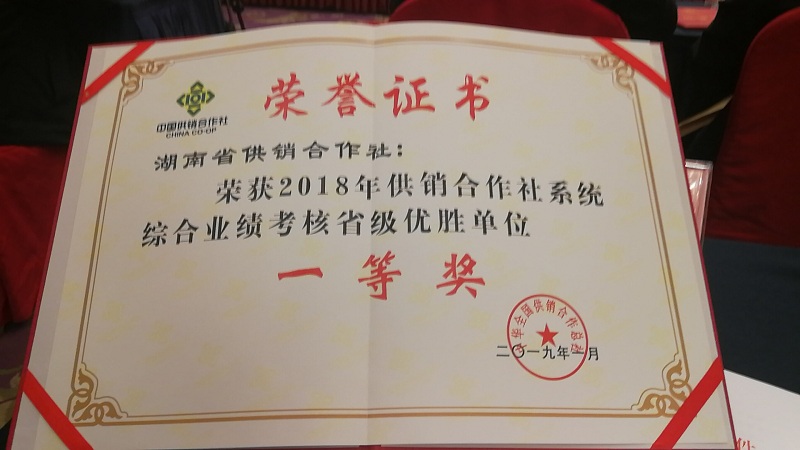 荣誉证书
中国供销合作社
CHINA CO-OP
湖南省供销合作社：
荣获2018年供销合作社系统
综合业绩考核省级优胜单位
一等奖
中华全国供销合作总社
二〇一九年一月